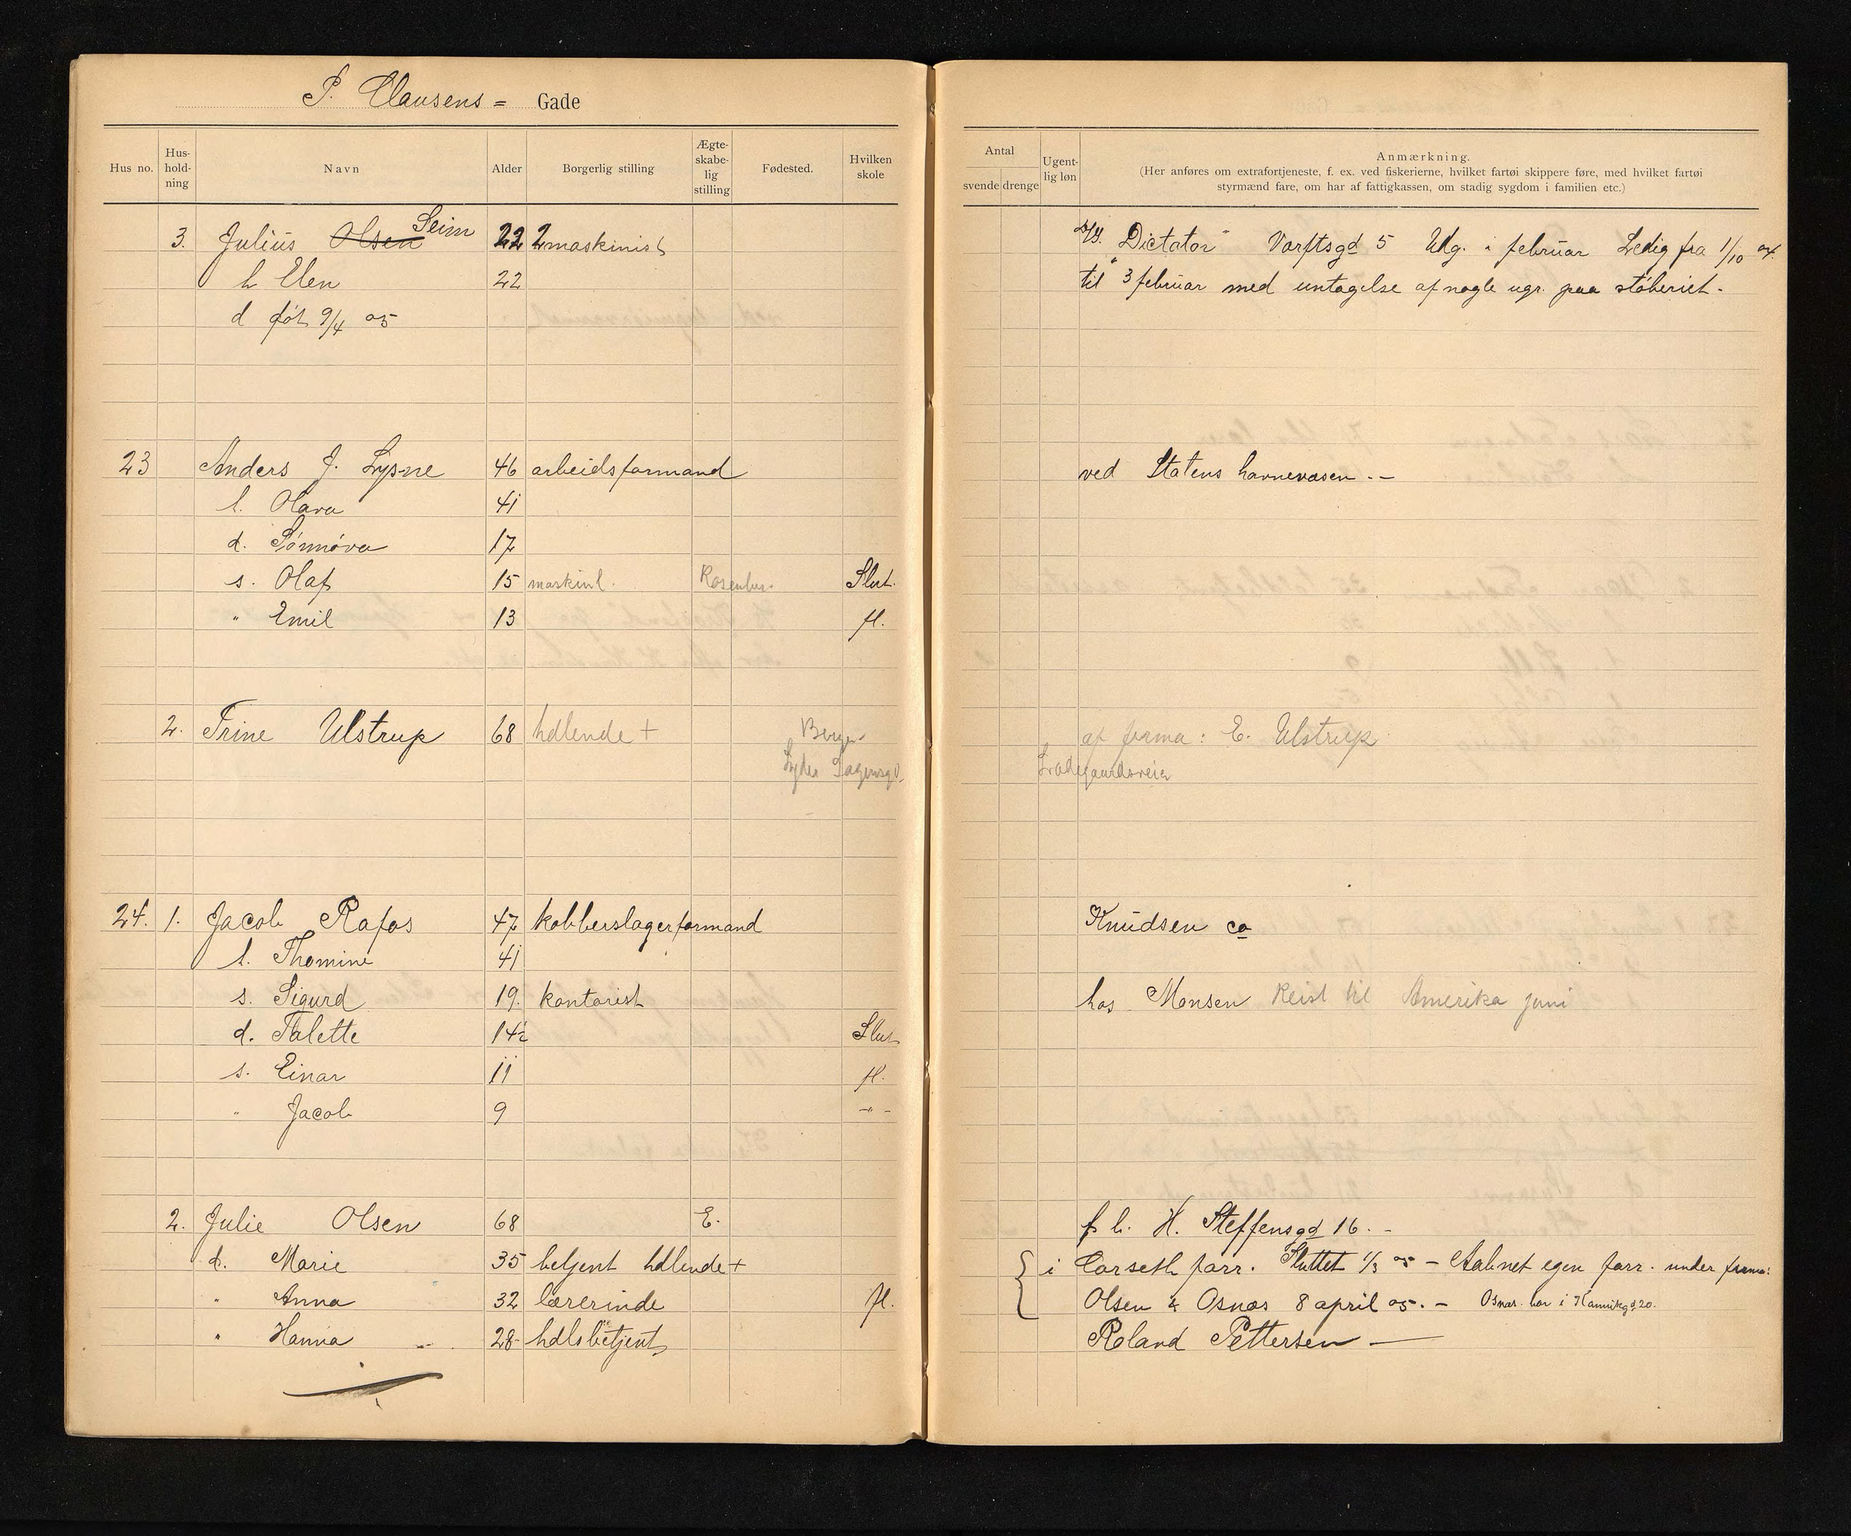 P. Clausens = Gade
Hus no. Hus-hold-ning Navn Alder Borgerlig stilling Ægte-skabe-lig stilling Fødested. Hvilken skole
Antal svende drenge Ugent-lig løn Anmærkning.
(Her anføres om extrafortjeneste, f. ex. ved fiskerierne, hvilket fartøi skippere føre, med hvilket fartøi
styrmænd fare, om har af fattigkassen, om stadig sygdom i familien etc.)
3. Julius Olsen Seim 22 2 maskinist "Dictator" Varftsgd 5 Udg. i februar Ledig fra 1/10 04.
h Elen 22 til 3 februar med untagelse af nogle ugr. paa støberiet.
d føt 9/4 05
23 Anders J. Lysne 46 arbeidsformand ved Statens havnevæsen. -
h. Olava 41
d. Sønnøva 17
s. Olaf 15 maskinl. Rosenbr. Slut.
" Emil 13 fl.
2. Trine Ulstrup 68 hdlende + Berge- af firma: E. Ulstrup
Lyder Sagensgd. Ladegaardsveien
24. 1. Jacob Rafos 47 kobberslagerformand Knudsen co
h. Thomine 41
s. Sigurd 19. kontorist hos Monsen Reist til Amerika juni
d. Talette 14½ Slut
s. Einar 11 fl.
" Jacob 9 - " -
2. Julie Olsen 68 E. f b. H. Steffensgd 16. -
d. Marie 35 betjent hdlende + i Corseth forr. Sluttet 1/3 05 - Aabnet egen forr. under firma:
" Anna 32 lærerinde fl. Olsen & Osnas 8 april 05. - Osnas. bor i Kannikgd 20.
" Hanna 28 hdlsbetjent Roland Pettersen -